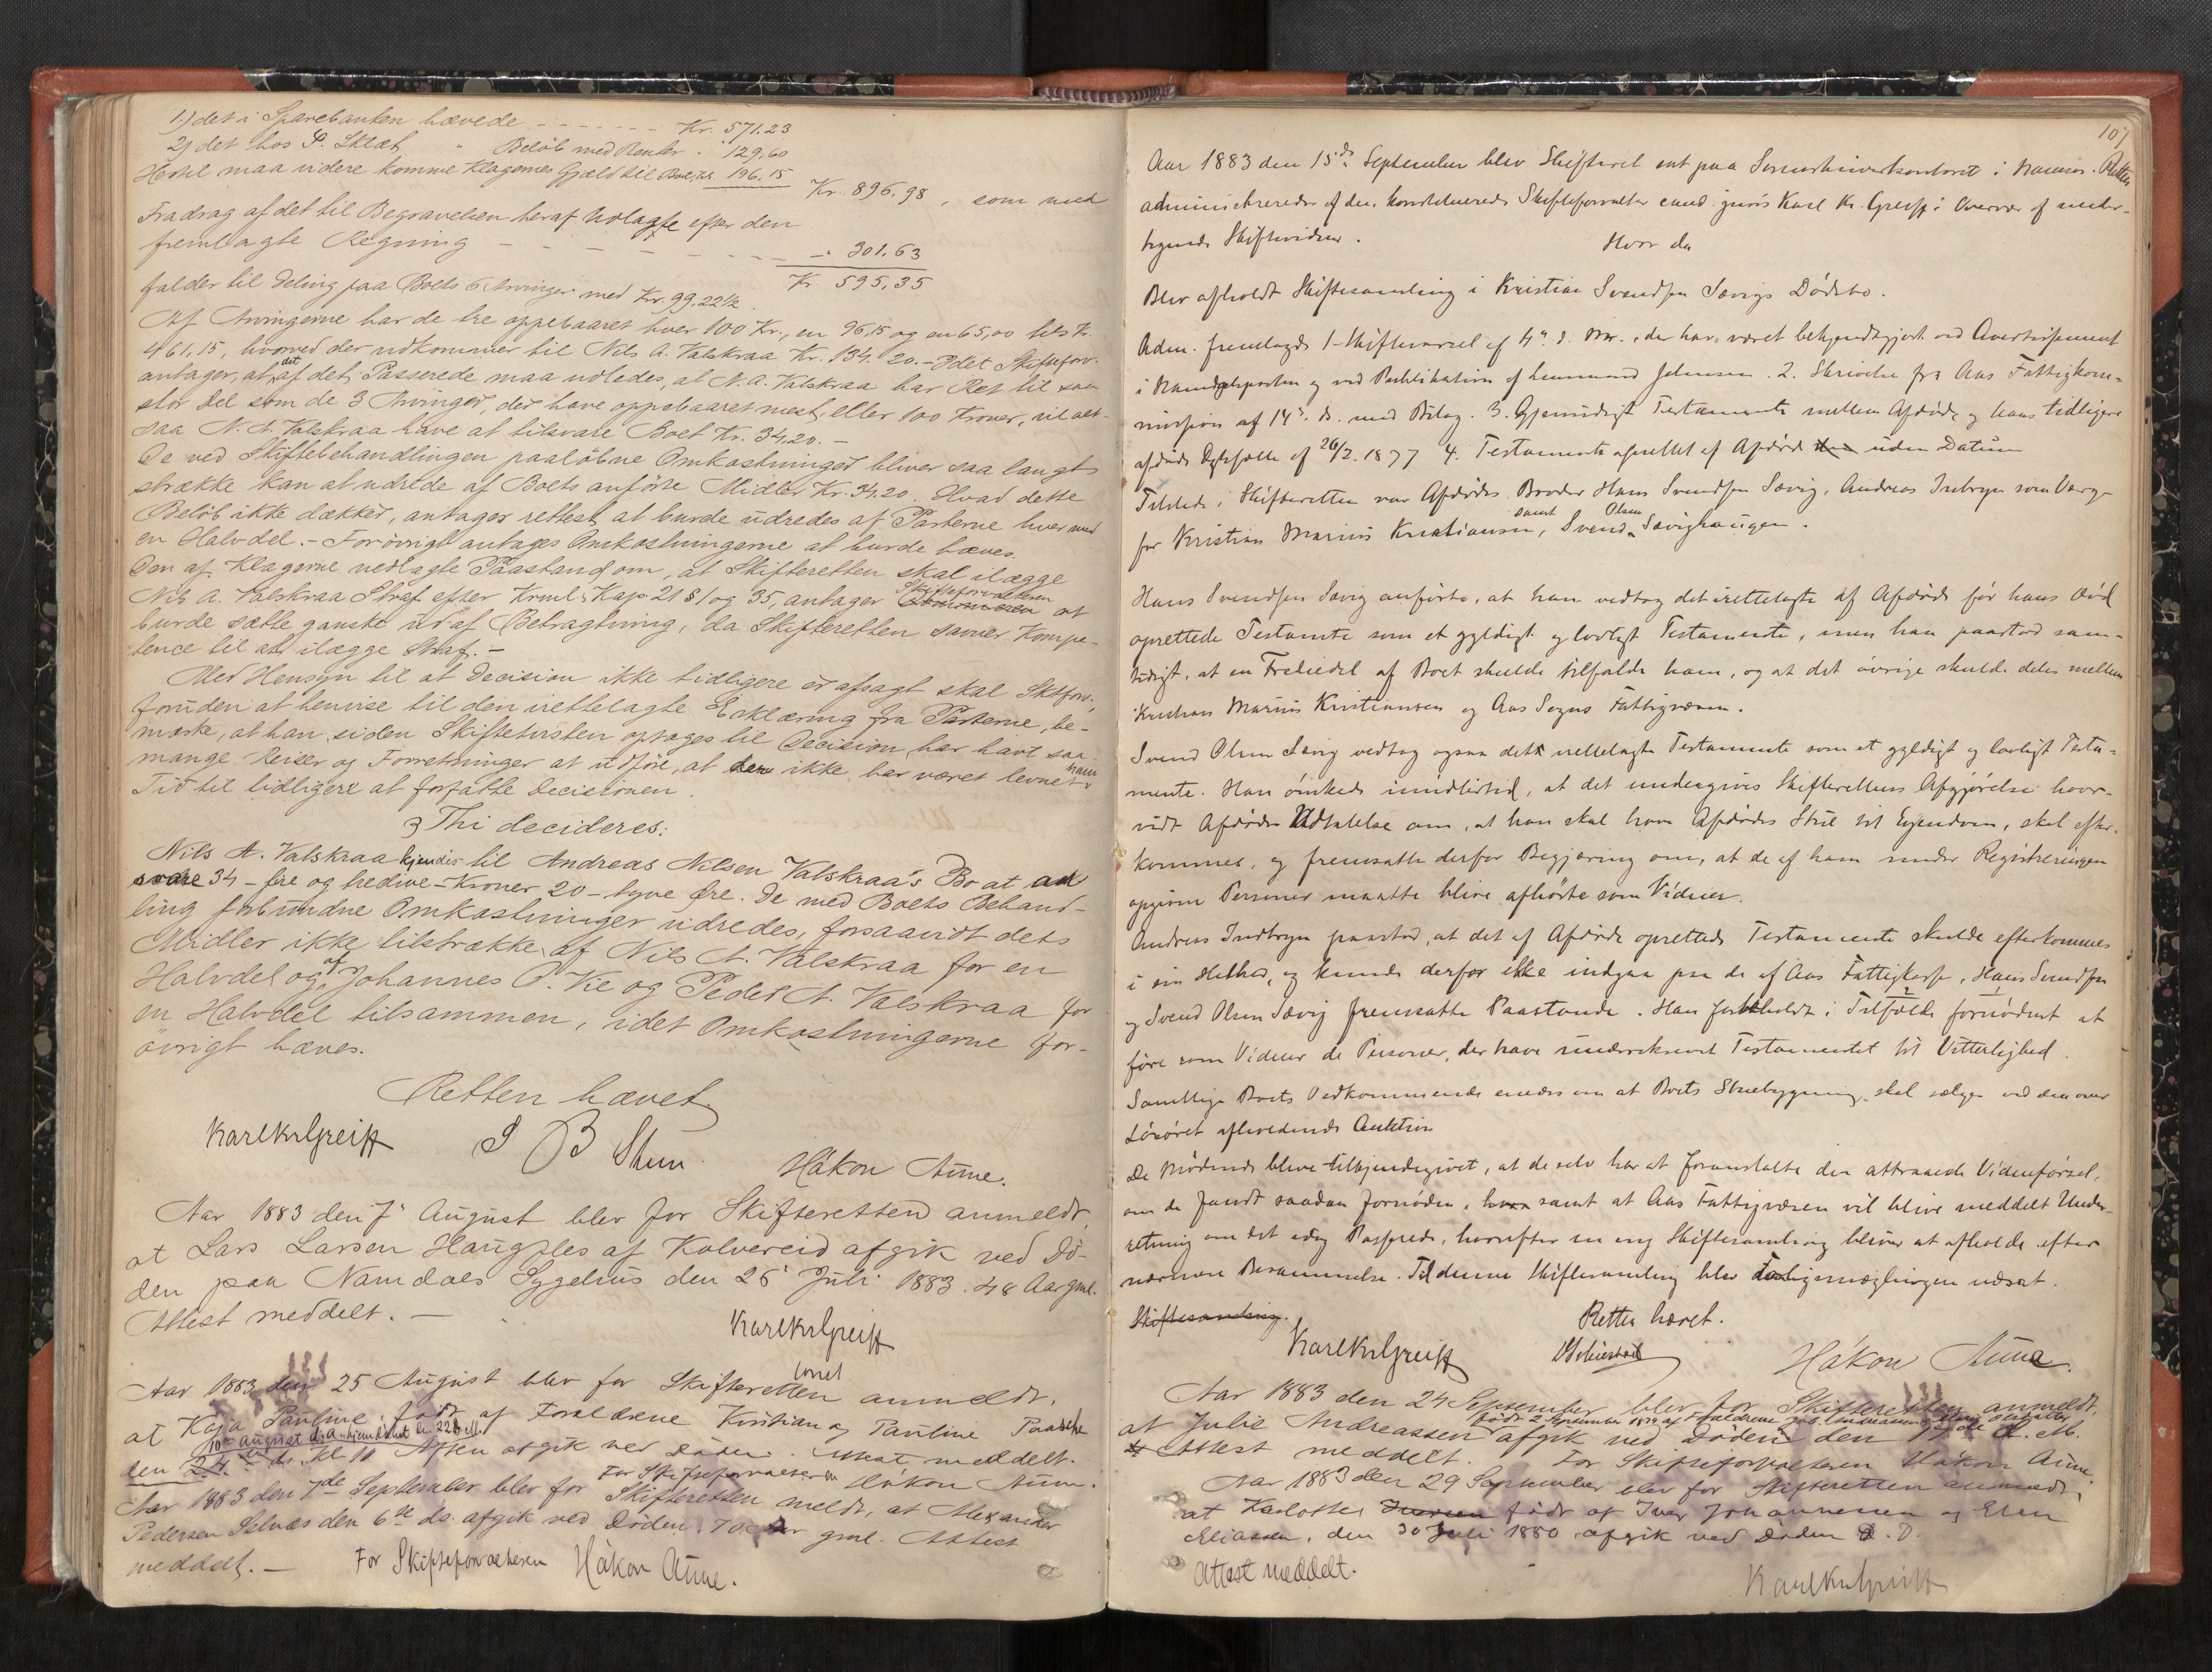 1.) det i Sparebanken hævede - - - - - - - Kr. 571.23
2) det hos P. Sklæt " Beløb med Renter - " 129,60
Hertil maa videre komme Klagernes Gjæld til Boet, Kr. 196,15
Kr. 896.98, som med
Fradrag af det til Begravelsen heraf Udlagte efter den
fremlagte Regning - - - - - - - - " 301,63
Kr 595,35
falder til Deling paa Boets 6 Arvinger med Kr. 99.22½.
Af Arvingerne har de tre oppebaaret hver 100 Kr., en 96,15 og en 65,00 tils. Kr.
461,15, hvorved der udkommer til Nils A. Valskraa Kr. 134.20. - Idet Skifteforv.
antager, at det af det Passerede maa udledes, at N. A. Valskraa har Ret til saa
stor Del som de 3 Arvinger, der have oppebaaret mest, eller 100 Kroner, vil alt-
saa N. A. Valskraa have at tilsvare Boet Kr. 34,20. -
De ved Skiftebehandlingen paaløbne Omkostninger bliver saa langt
strække kan at udrede af Boets anførte Midler Kr. 34,20. Hvad dette
Beløb ikke dækker, antages rettest at burde udredes af Parterne hver med
en Halvdel. - Forøvrigt antages Omkostningerne at burde hæves.
Den af Klagerne nedlagte Paastand om, at Skifteretten skal ilægge
Nils A. Valskraa Straf efter Krml.s Kap. 21 § 1 og 35, antager Skifteforvalteren at
burde sætte ganske ud af Betragtning, da Skifteretten savner Kompe-
tence til at ilægge Straf. -
Med Hensyn til at Decision ikke tidligere er afsagt skal Skfforv.,
foruden at henvise til den irettelagte Erklæring fra Parterne, be-
mærke, at han, siden Skiftetvisten optoges til Decision, har havt saa
mange Reiser og Forretninger at udføre, at der ikke har været levnet ham
Tid til tidligere at forfatte Decisionen.
Thi decideres:
Nils A. Valskraa kjendes til Andreas Nilsen Valskraa's Bo at ud
rede 34 - fire og tredive - Kroner 20 - tyve Øre. De med Boets Behand-
ling forbundne Omkostninger udredes, forsaavidt dets
Midler ikke tilstrække, af Nils A. Valskraa for en
Halvdel og af Johannes P. Kle og Peder A. Valskraa for
en Halvdel tilsammen, idet Omkostningerne for-
øvrigt hæves.
Retten hævet
Karl Kr Greiff S B Stun Håkon Aune.
Aar 1883 den 7' August blev for Skifteretten anmeldt,
at Lars Larsen Haugfles af Kolvereid afgik ved Dø-
den paa Namdals Sygehus den 25' Juli 1883. 48 Aar gml.
Attest meddelt. -
Karl Kr Greiff
Aar 1883 den 25 August blev for Skifteretten anmeldt,
at Kaja Pauline, født af Forældrene Kristian og Pauline Paasche
10de august d. a.
den 24de ds. Kl 11 Aften afgik ved Døden. Attest meddelt.
For Skifteforvalteren Håkon Aune.
Aar 1883 den 7de September blev for Skifteretten meldt, at Alexander
Pedersen Selnæs den 6te ds. afgik ved Døden, 70 Aar gml. Attest
meddelt. - For Skifteforvalteren Håkon Aune.
107
Aar 1883 den 15de September blev Skifteret sat paa Sorenskriverkontoret i Namsos. Retten
administreredes af den konstituerede Skifteforvalter cand. juris Karl Kr. Greiff i Overvær af under-
tegnede Skiftevidner. Hvor da
Blev afholdt Skiftesamling i Kristian Svendsen Sævigs Dødsbo.
Adm. fremlagde 1. Skiftevarsel af 4de d. M., der har været bekjendtgjort ved Avertissement
i Namdalsposten og ved Publikation af Lensmand Johnsen. 2. Skrivelse fra Aas Fattigkom-
mission af 14de ds. med Bilag. 3. Gjensidigt Testamente mellem Afdøde og hans tidligere
afdøde Ægtefælle af 26/2. 1877 4. Testamente oprettet af Afdøde uden Datum
Tilstede i Skifteretten var Afdødes Broder Hans Svendsen Sævig, Andreas Indbryn som Værge
for Kristian Marius Kristiansen, samt Svend Olsen Sævighaugen.
Hans Svendsen Sævig anførte, at han vedtog det irettelagte af Afdøde før hans Død
oprettede Testamente som et gyldigt og lovligt Testamente, men han paastod sam-
tidigt, at en Trediedel af Boet skulde tilfalde ham, og at det øvrige skulde deles mellem
Kristian Marius Kristiansen og Aas Sogns Fattigvæsen.
Svend Olsen Sævig vedtog ogsaa det irettelagte Testamente som et gyldigt og lovligt Testa-
mente. Han ønskede imidlertid, at det undergives Skifterettens Afgjørelse hvor-
vidt Afdødes Udtalelse om, at han skal have Afdødes Stue til Eiendom, skal efter-
kommes, og fremsatte derfor Begjæring om, at de af ham under Registreringen
opgivne Personer maatte blive afhørte som Vidner.
Andreas Indbryn paastod, at det af Afdøde oprettede Testamente skulde efterkommes
i sin Helhed, og kunde derfor ikke indgaa paa de af Aas Fattigkasse, Hans Svendsen
og Svend Olsen Sævig fremsatte Paastande. Han forbeholdt i Tilfælde fornødent at
føre som Vidner de Personer, der have underskrevet Testamentet til Vitterlighed.
Samtlige Boets Vedkommende enedes om at Boets Stuebygning skal sælges ved den over
Løsøret afholdende Auktion
De Mødende bleve tilkjendegivet, at de selv har at foranstalte den attraaede Vidneførsel,
om de fandt saadan fornøden, samt at Aas Fattigvæsen vil blive meddelt Under-
retning om det idag Passerede, hvorefter en ny Skiftesamling bliver at afholde efter
nærmere Berammelse. Til denne Skiftesamling blev Forligsmæglingen udsat.
Skiftesamling. Retten hævet.
Karl Kr Greiff Håkon Aune.
Aar 1883 den 24 September blev for Skifteretten anmeldt,
at Julie Andreassen afgik ved Døden den 17de d. M.
Attest meddelt. For Skifteforvalteren Håkon Aune.
Aar 1883 den 29 September blev for Skifteretten anmeldt,
at Karlotte Iversen født af Iver Johannesen og Elen
Eliassen, den 30 Juli 1880 afgik ved Døden D. D.
Attest meddelt.
Karl Kr Greiff